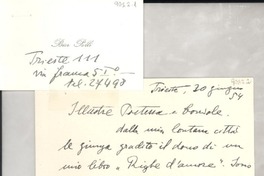 Trieste 111
via Franca 5 I°
tel. 27498
Trieste, 20 giugno
54
Illustre Poetessa e Console,
dalla mia lontana città
le giunga gradito il dono di un
mio libro "Righe d'amore". Sono